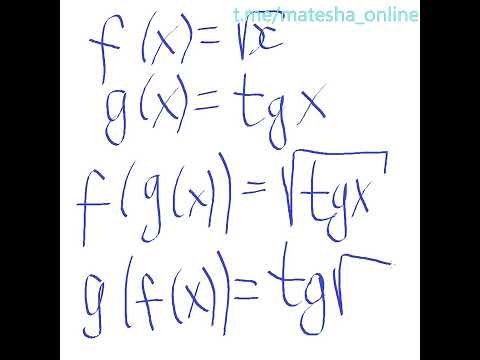 t.me/matesha_online
f(x)=√x
g(x)=tgx
f(g(x))=√tgx
g(f(x))=tg√